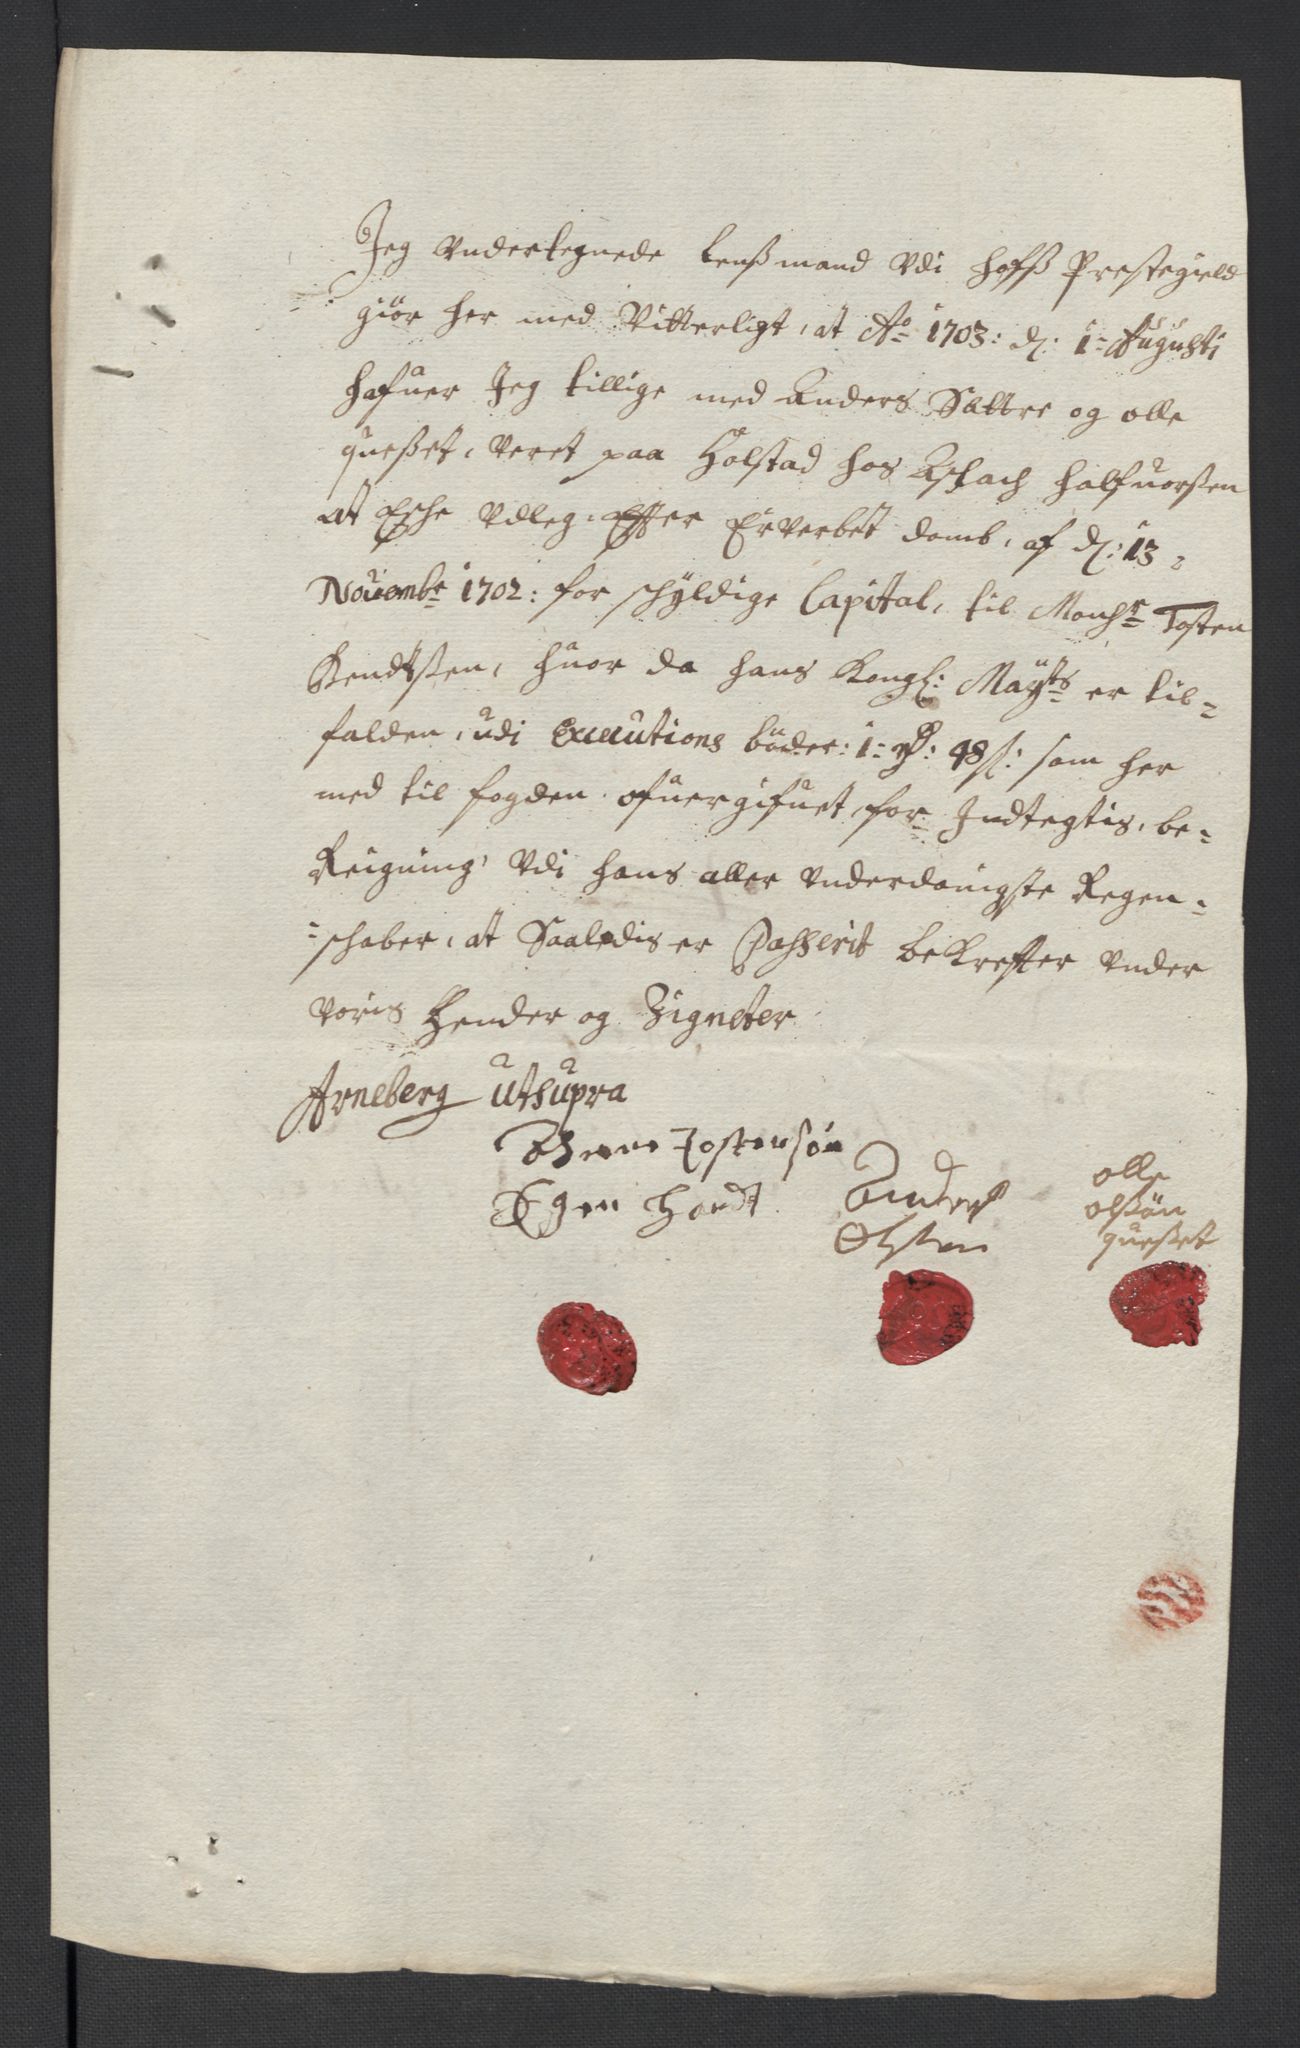 Jeg Undertegnede Lensmand Udi Hoffs Prestegield
giör her med Vitterligt, at Ao 1703: d: 1 Augusti
hafuer Jeg tillige med Anders Sættre og olle
quesset, veret paa Holstad hos Aschach halfuorsen
at Esche Udleg, Effter Erverbet domb, af d: 13
Novembr 1702: for schyldige Capital, til Monsr Tosten
Bendtsen, huor da hans Kongl: Mayts er til=
falden, udi Executions böder: 1 rd: 48 s: som her
med til fogden ofuergifuet, for Indtegtis, be=
Reigning Udi hans aller underdanigste Regen=
=schaber, at Saaledis er Passerit bekrefter under
voris Hender og Zigneter
Arneberg utsupra
Jostensön
Egen handt
Anders
Olsen
olle
olsön
quesset